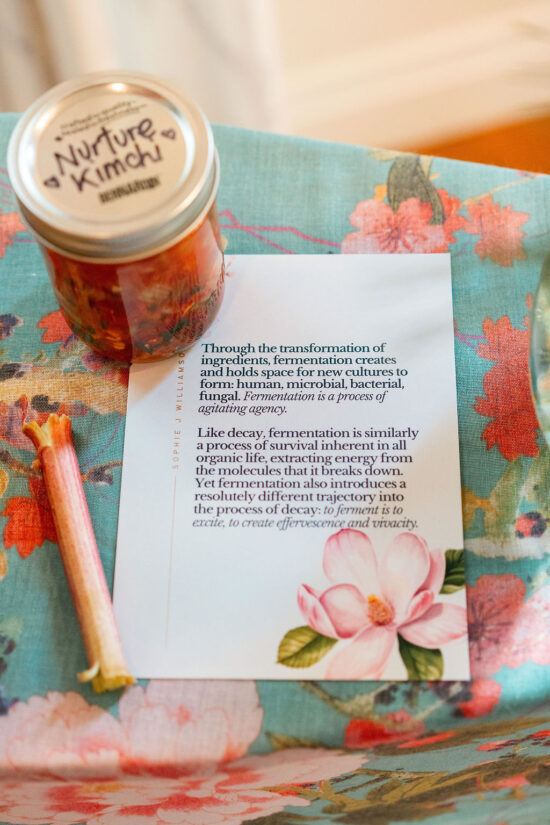 Nurture
Kimchi
SOPHIE J WILLIAMS
Through the transformation of
ingredients, fermentation creates
and holds space for new cultures to
form: human, microbial, bacterial,
fungal. Fermentation is a process of
agitating agency.
Like decay, fermentation is similarly
a process of survival inherent in all
organic life, extracting energy from
the molecules that it breaks down.
Yet fermentation also introduces a
resolutely different trajectory into
the process of decay: to ferment is to
excite, to create effervescence and vivacity.